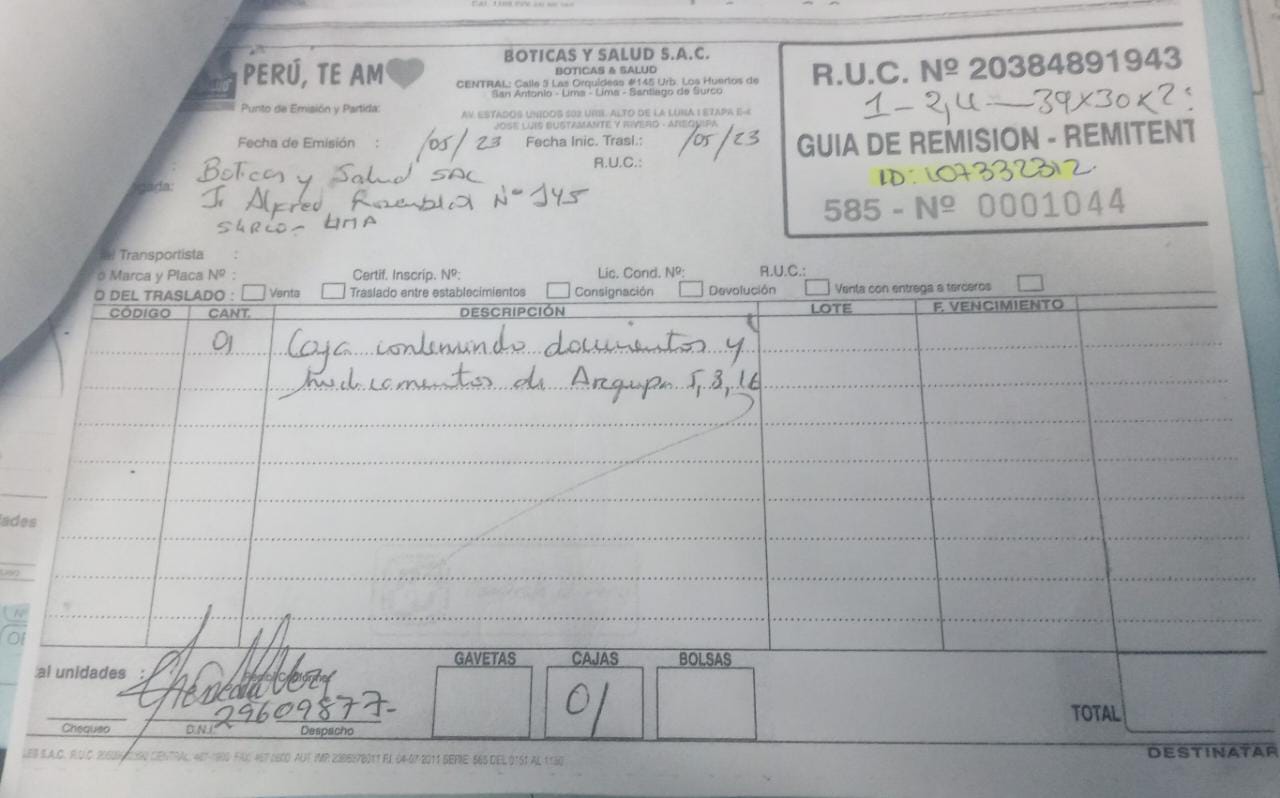 PERÚ, TE AM
BOTICAS Y SALUD S.A.C.
BOTICAS & SALUD
CENTRAL: Calle 3 Las Orquideas #145 Urb. Los Huertos de
San Antonio - Lima - Lima - Santiago de Surco
Punto de Emisión y Partida:
AV. ESTADOS UNIDOS 502 URB. ALTO DE LA LUNA I ETAPA E-4
JOSE LUIS BUSTAMANTE Y RIVERO - AREQUIPA
Fecha de Emisión : /05/23 Fecha Inic. Trasl.: /05/23
R.U.C.:
R.U.C. Nº 20384891943
1 - 2,4 — 39x30x2
GUIA DE REMISION - REMITENT
ID: 107332312
585 - Nº 0001044
Boticas y Salud SAC
Jr Alfred Rosenblat Nº 145
SURCO - LIMA
Transportista :
Marca y Placa Nº : Certif. Inscrip. Nº: Lic. Cond. Nº: R.U.C.:
O DEL TRASLADO : Venta Traslado entre establecimientos Consignación Devolución Venta con entrega a terceros
CÓDIGO CANT. DESCRIPCIÓN LOTE F. VENCIMIENTO
01 Caja conteniendo documentos y
medicamentos de Arequipa 5, 3, 16
al unidades :
GAVETAS CAJAS BOLSAS
01
29609877-
Chequeo D.N.I.: Despacho
TOTAL
DESTINATAR